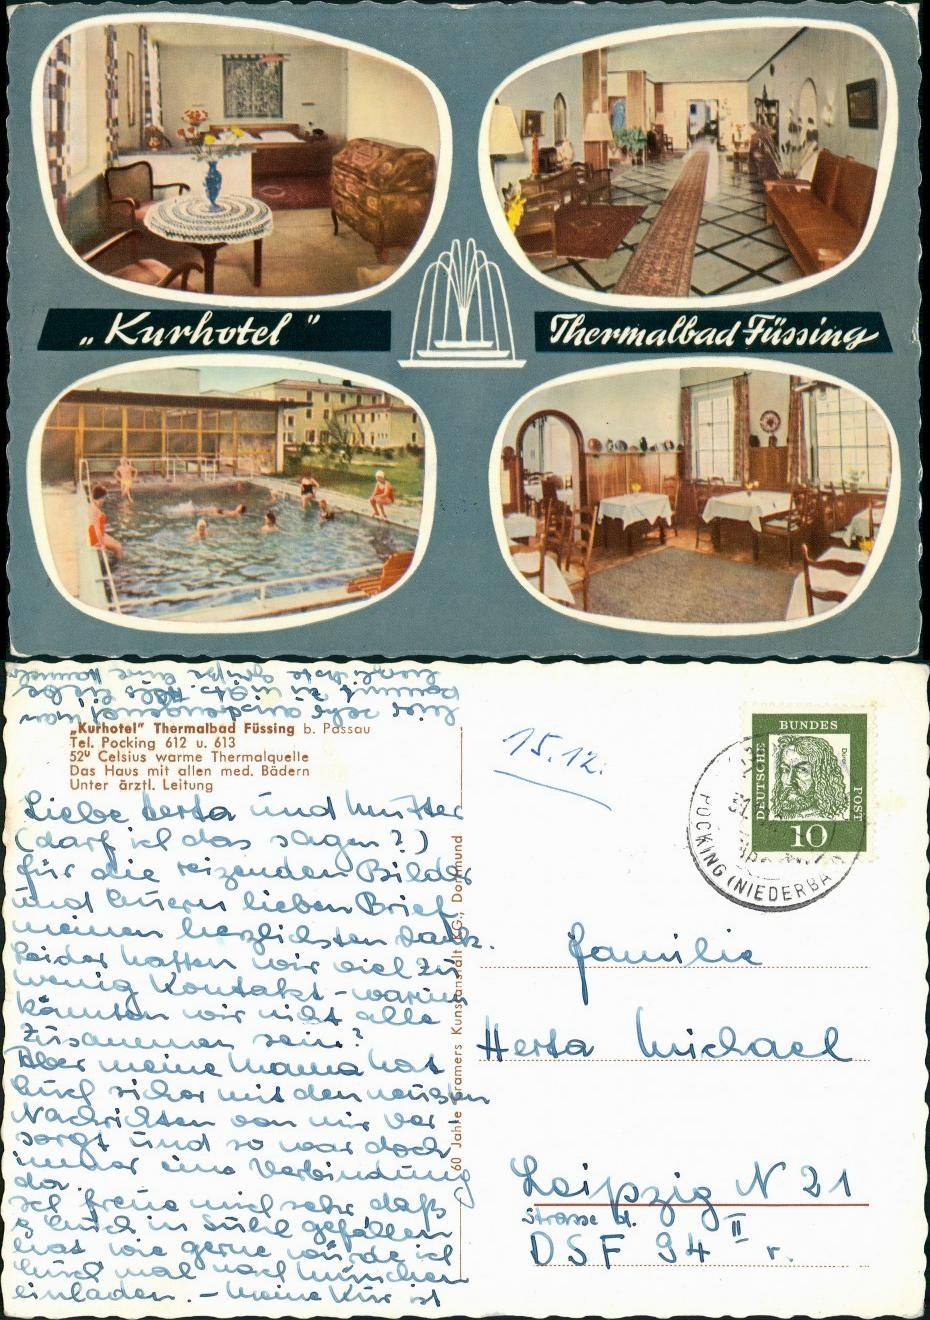 „Kurhotel”
Thermalbad Füssing
„Kurhotel" Thermalbad Füssing b. Passau
Tel. Pocking 612 u. 613
52° Celsius warme Thermalquelle
Das Haus mit allen med. Bädern
Unter ärztl. Leitung
Liebe Herta und Mutter
(darf ich das sagen?)
für die reizenden Bilder
und Euern lieben Brief
meinen herzlichsten Dank.
Leider hatten wir viel zu
wenig Kontakt – warum
könnten wir nicht alle
zusammen sein?
Aber meine Mama hat
Euch sicher mit den neusten
Nachrichten von mir ver-
sorgt und so war doch
immer eine Verbindung
da.
Ich freue mich sehr daß
es Euch in Suhl gefallen
hat wie gerne würde ich
Euch mal nach München
einladen. – Meine Kur ist
hier sehr anstrengend
60 Jahre Cramers Kunstanstalt KG., Dortmund
15.12.
DEUTSCHE
BUNDES
POST
Dürer
10
POCKING (NIEDERBA
Familie
Herta Michael
Leipzig N 21
Strasse d.
DSF 94 II r.